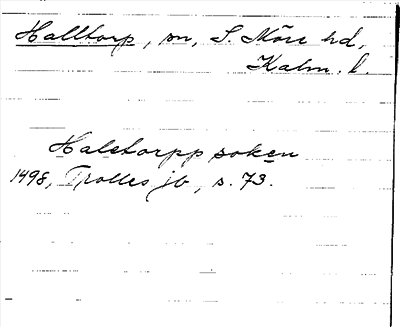 Halltorp, sn, S. Möre hd,
Kalm. l.
Haletorpp soken
1498, Trolles jb, s. 73.